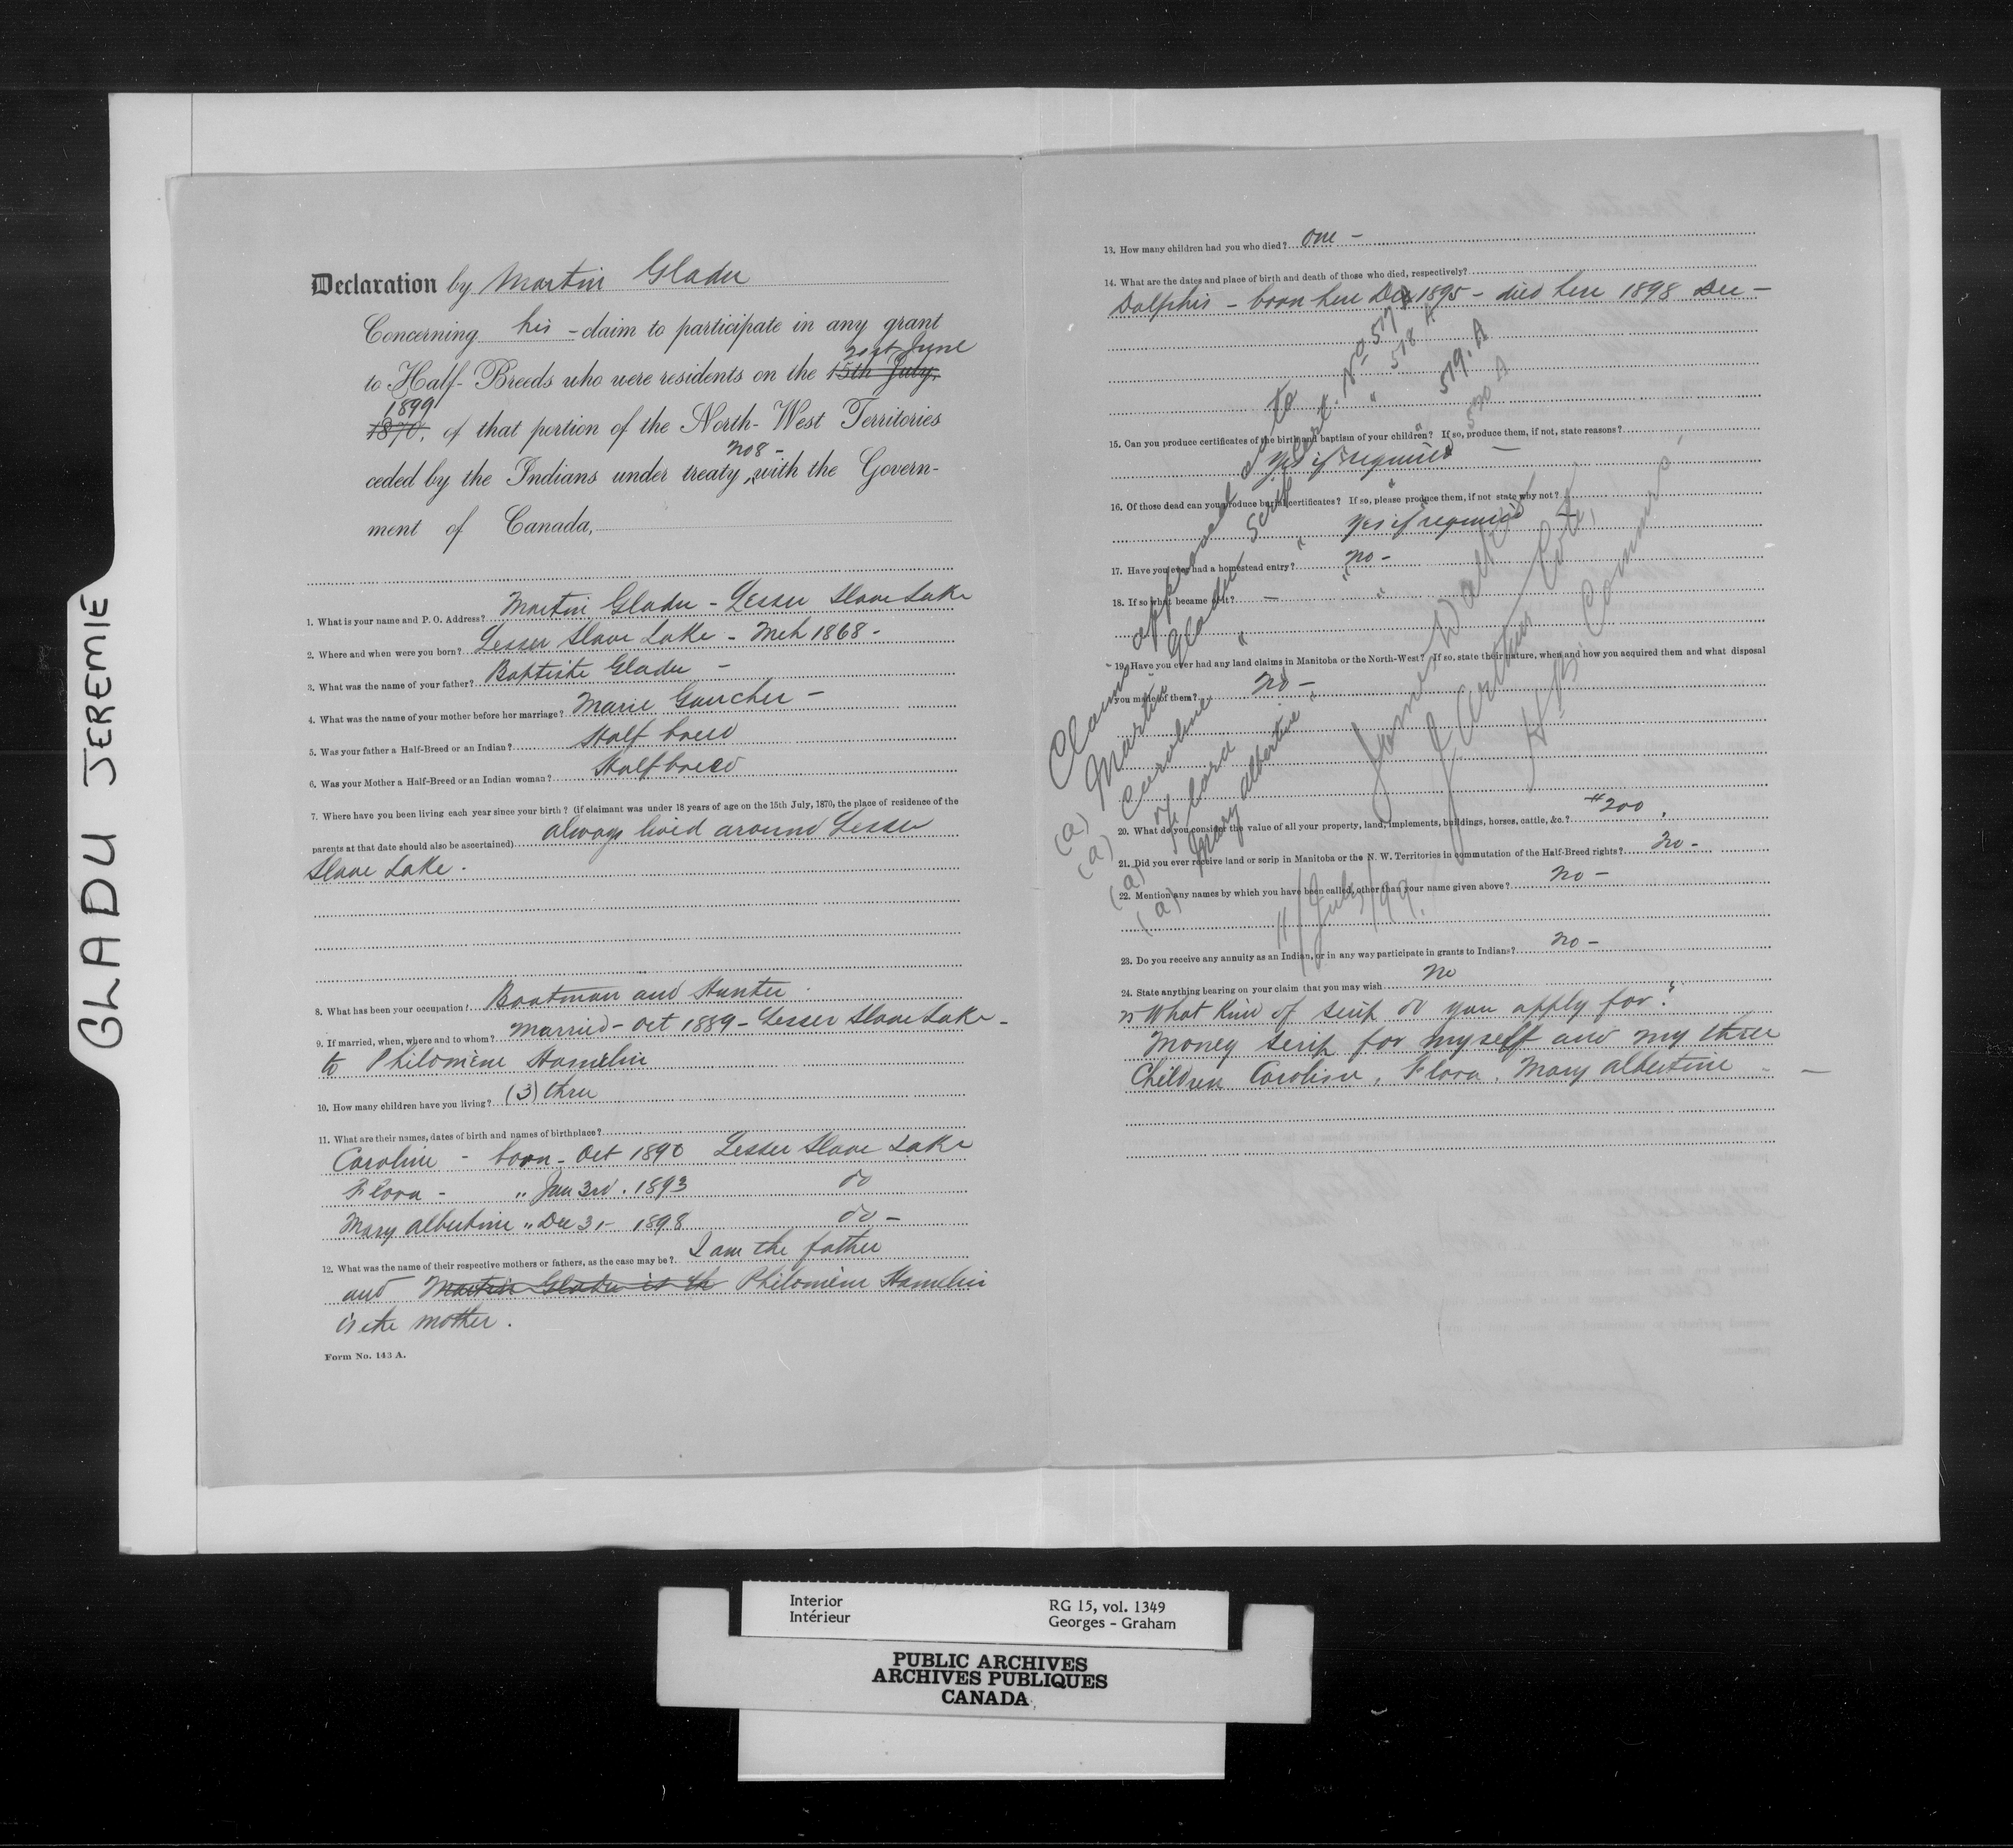 GLADU JEREMIE
Declaration by Martin Gladu
Concerning his - claim to participate in any grant
21st June
to Half-Breeds who were residents on the 15th July,
1899
1870, of that portion of the North-West Territories
No 8 -
ceded by the Indians under treaty, with the Govern-
ment of Canada,
1. What is your name and P. O. Address? Martin Gladu - Lesser Slave Lake
2. Where and when were you born? Lesser Slave Lake - Mch 1868 -
3. What was the name of your father? Baptiste Gladu -
4. What was the name of your mother before her marriage? Marie Gaucher -
5. Was your father a Half-Breed or an Indian? Half breed
6. Was your Mother a Half-Breed or an Indian woman? Half breed
7. Where have you been living each year since your birth? (if claimant was under 18 years of age on the 15th July, 1870, the place of residence of the
parents at that date should also be ascertained) always lived around Lesser
Slave Lake.
8. What has been your occupation? Boatman and Hunter
9. If married, when, where and to whom? Married - Oct 1889 - Lesser Slave Lake -
to Philomène Hamelin
10. How many children have you living? (3) three
11. What are their names, dates of birth and names of birthplace?
Caroline - born - Oct 1890 Lesser Slave Lake
Flora - " Jan 3rd. 1893 do
Mary Albertine " Dec 31 - 1898 do -
12. What was the name of their respective mothers or fathers, as the case may be? I am the father
and Martin Gladu is the Philomène Hamelin
is the mother.
Form No. 143 A.
13. How many children had you who died? One -
14. What are the dates and place of birth and death of those who died, respectively?
Dolphis - born here Dec 1895 - died here 1898 Dec -
15. Can you produce certificates of the birth and baptism of your children? If so, produce them, if not, state reasons?
Yes if required -
16. Of those dead can you produce burial certificates? If so, please produce them, if not state why not?
Yes if required -
17. Have you ever had a homestead entry? No -
18. If so what became of it? -
19. Have you ever had any land claims in Manitoba or the North-West? If so, state their nature, when and how you acquired them and what disposal
you made of them? No -
20. What do you consider the value of all your property, land, implements, buildings, horses, cattle, &c.? $200.
21. Did you ever receive land or scrip in Manitoba or the N. W. Territories in commutation of the Half-Breed rights? No -
22. Mention any names by which you have been called, other than your name given above? No -
23. Do you receive any annuity as an Indian, or in any way participate in grants to Indians? No -
24. State anything bearing on your claim that you may wish No
25 What Kind of scrip do you apply for?
Money scrip for myself and my three
Children Caroline, Flora, Mary Albertine -
Claims approved as to
(a) Martin Gladu Scrip Cert. No 517 A
(a) Caroline " " " 518 A
(a) Flora " " 519. A
(a) Mary Albertine " " 520 A
James Walker
J Arthur Coté,
H. B. Commrs,
11/July/99.
Interior
Intérieur
RG 15, vol. 1349
Georges - Graham
PUBLIC ARCHIVES
ARCHIVES PUBLIQUES
CANADA